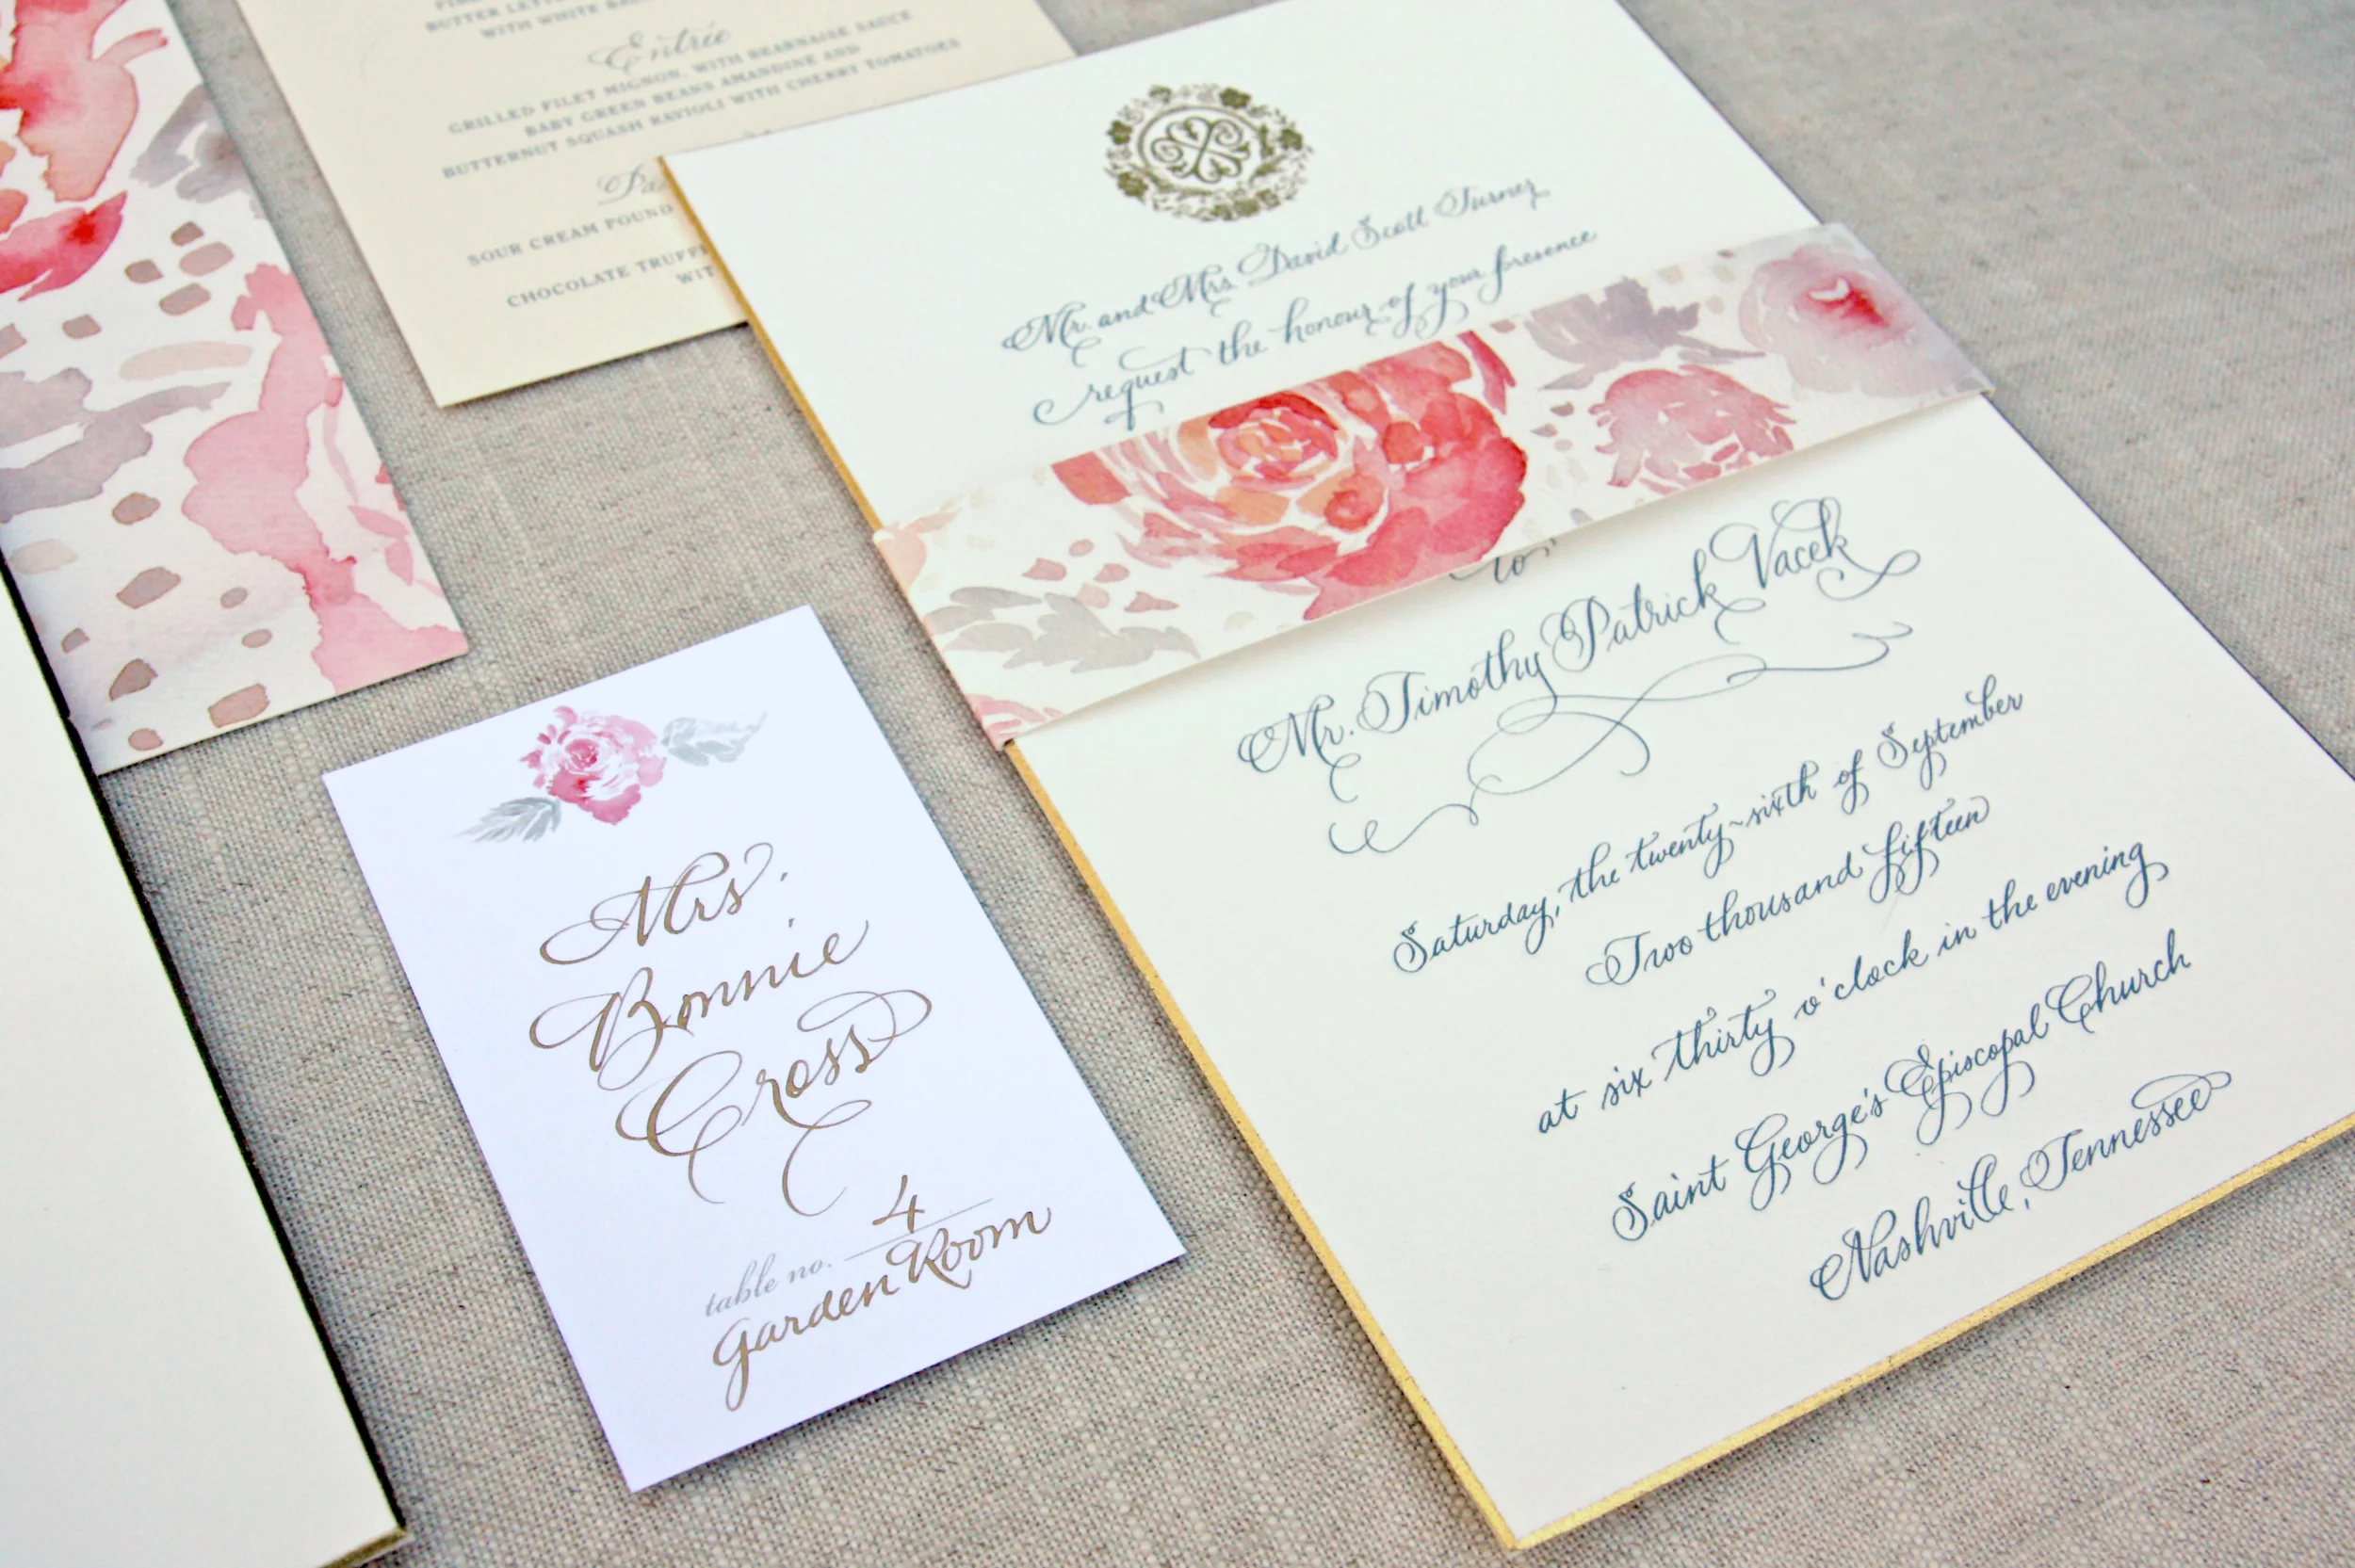 BUTTER LETT
WITH WHITE
Entrée
GRILLED FILET MIGNON, WITH BEARNAISE SAUCE
BABY GREEN BEANS AMANDINE AND
BUTTERNUT SQUASH RAVIOLI WITH CHERRY TOMATOES
SOUR CREAM POUND
CHOCOLATE TRUFF
WIT
Mr. and Mrs. David Scott Turner
request the honour of your presence
to
Mr. Timothy Patrick Vacek
Saturday, the twenty-sixth of September
Two thousand fifteen
at six thirty o'clock in the evening
Saint George's Episcopal Church
Nashville, Tennessee
Mrs.
Bonnie
Cross
table no. 4
Garden Room